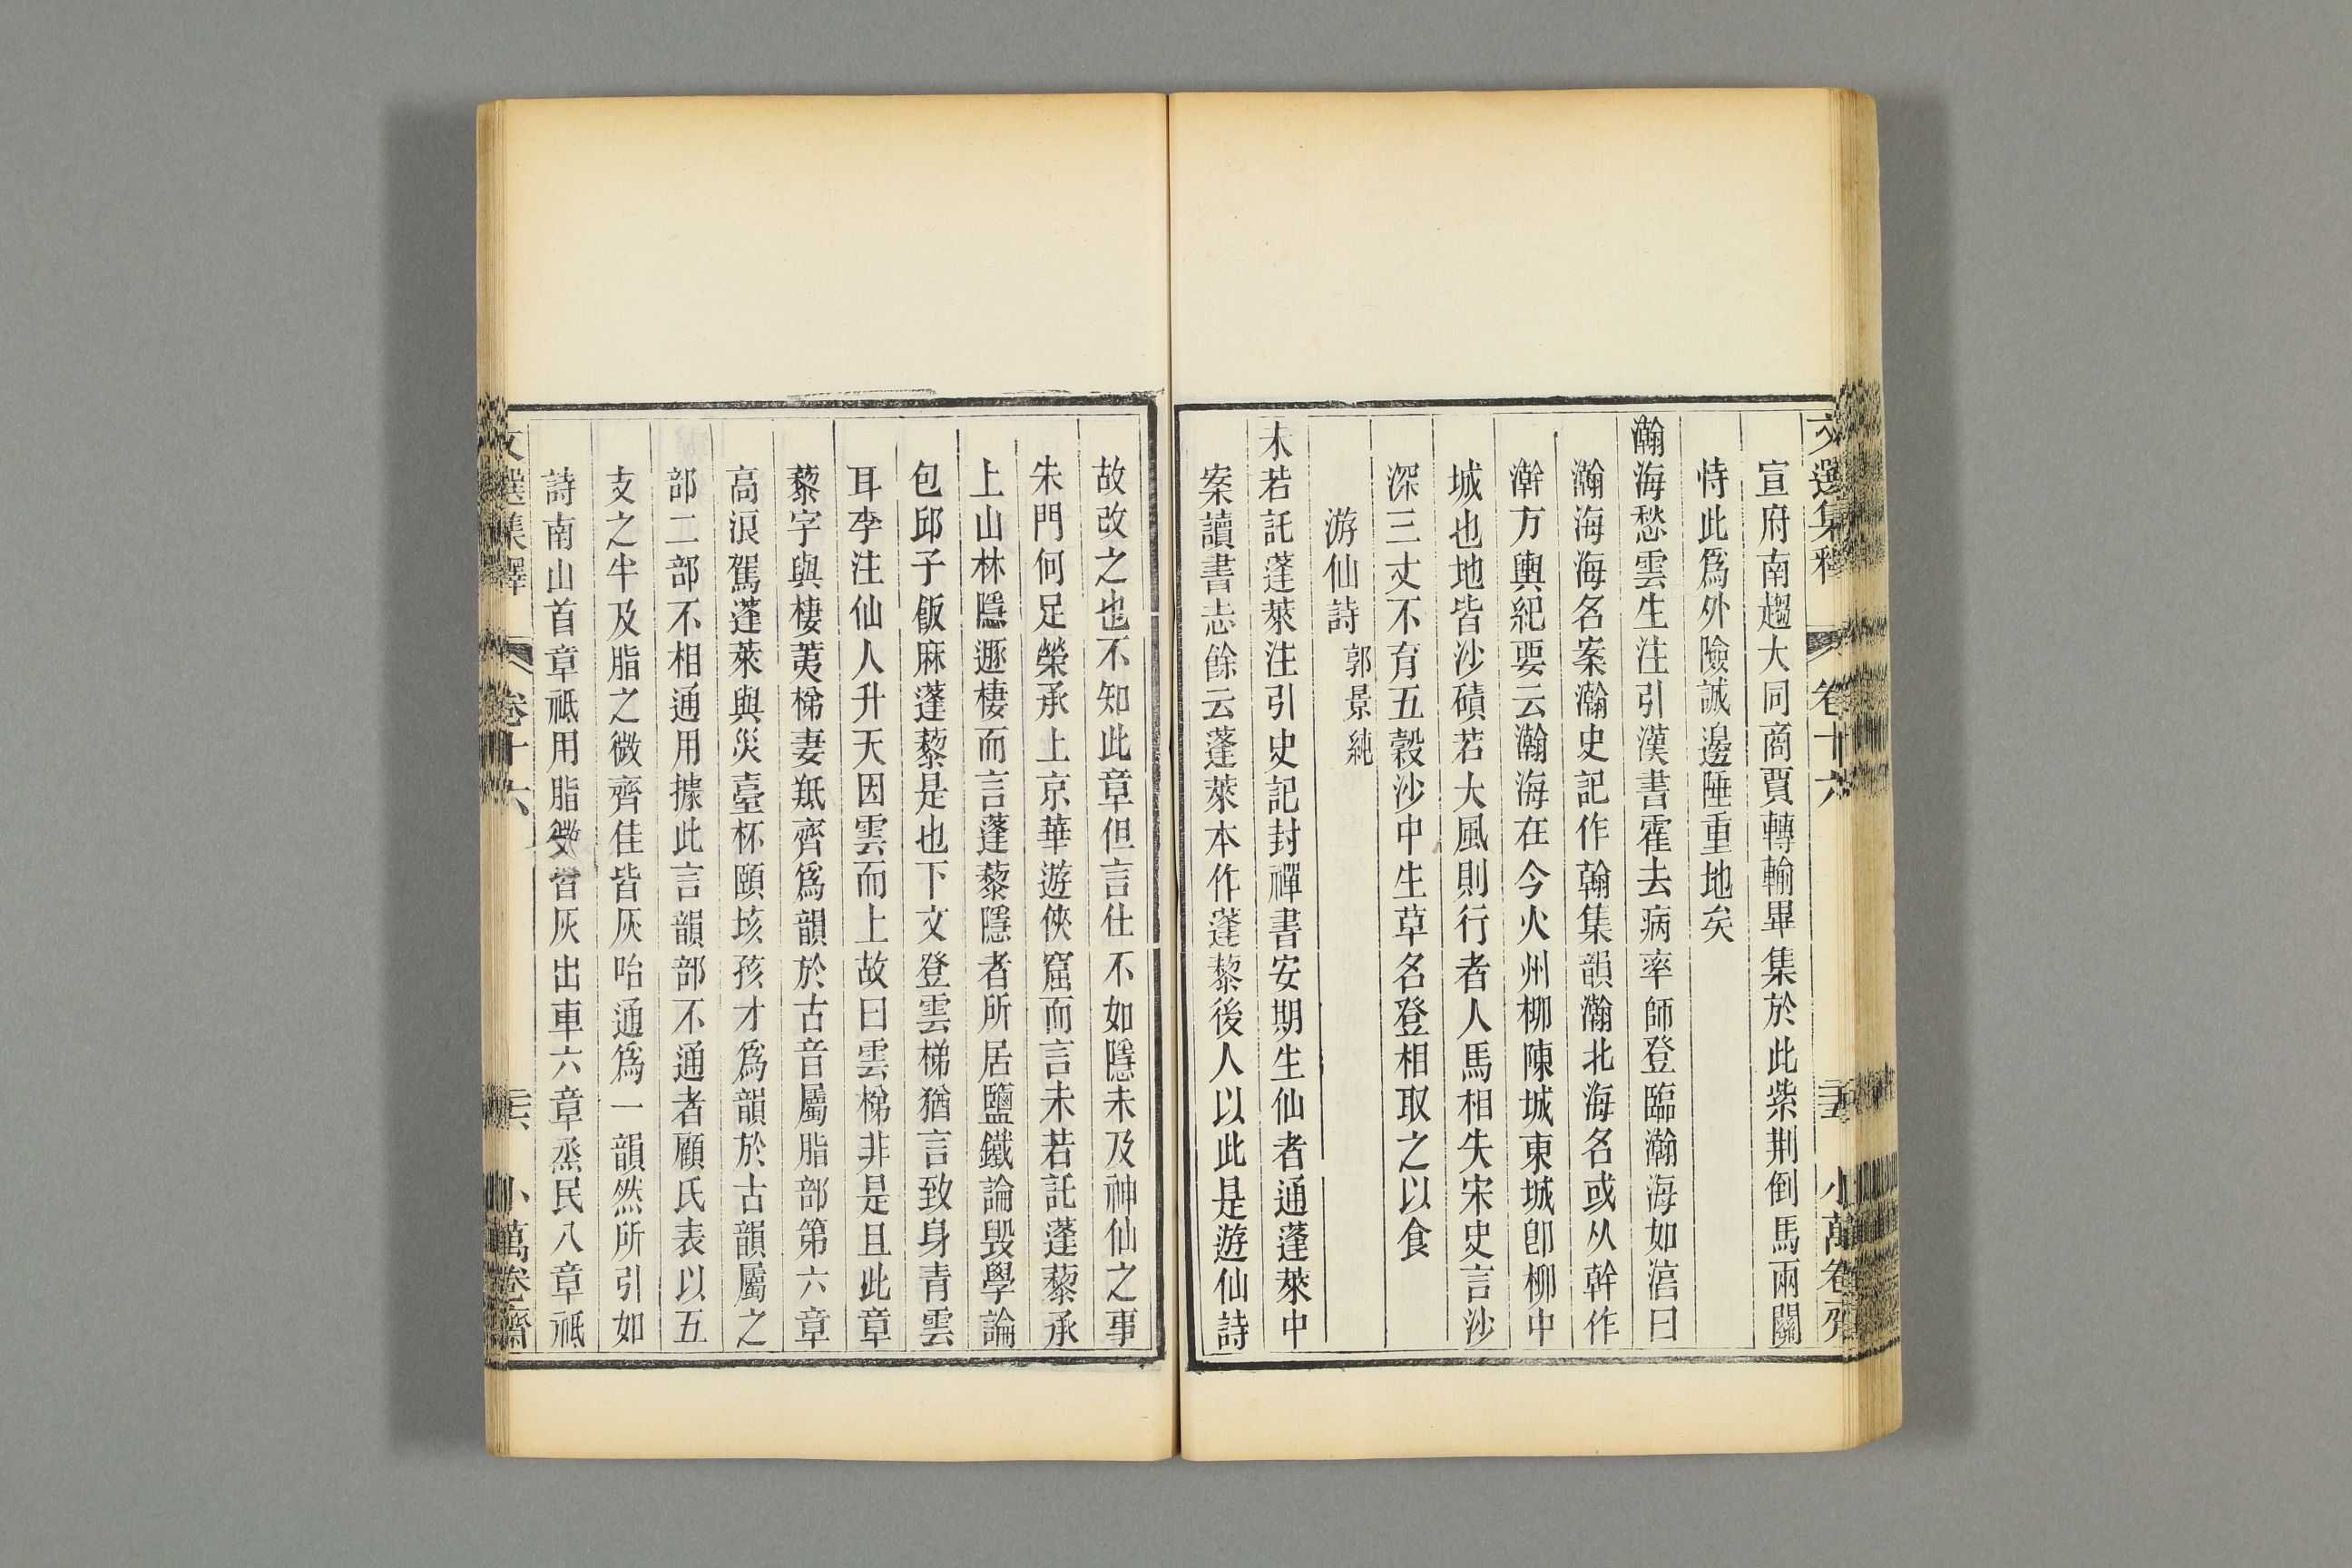 文選集釋 卷十六 二十五 小萬卷齋
宣府南趨大同商賈轉輸畢集於此紫荆倒馬兩關
恃此爲外險誠邊陲重地矣
瀚海愁雲生注引漢書霍去病率師登臨瀚海如湻曰
瀚海海名案瀚史記作翰集韻瀚北海名或从幹作
澣方輿紀要云瀚海在今火州柳陳城東城卽柳中
城也地皆沙磧若大風則行者人馬相失宋史言沙
深三丈不育五穀沙中生草名登相取之以食
游仙詩 郭景純
未若託蓬萊注引史記封禪書安期生仙者通蓬萊中
案讀書志餘云蓬萊本作蓬藜後人以此是遊仙詩
故改之也不知此章但言仕不如隱未及神仙之事
朱門何足榮承上京華遊俠窟而言未若託蓬藜承
上山林隱遯棲而言蓬藜隱者所居鹽鐵論毀學論
包邱子飯麻蓬藜是也下文登雲梯猶言致身青雲
耳李注仙人升天因雲而上故曰雲梯非是且此章
藜字與棲荑梯妻羝齊爲韻於古音屬脂部第六章
高浪駕蓬萊與災臺杯頤垓孩才爲韻於古韻屬之
部二部不相通用據此言韻部不通者顧氏表以五
支之半及脂之微齊佳皆灰咍通爲一韻然所引如
詩南山首章祗用脂微皆灰出車六章烝民八章祗
文選集釋 卷十六 二十六 小萬卷齋